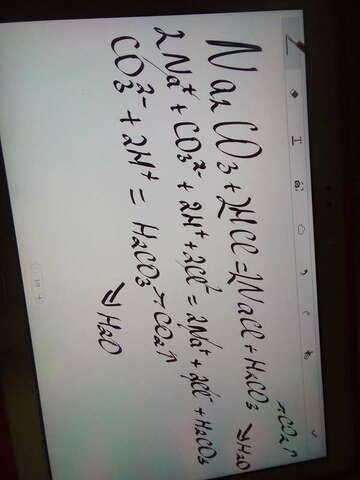 Na2CO3+2HCl=2NaCl+H2CO3 →CO2↑ ↘H2O
2Na⁺+CO3²⁻+2H⁺+2Cl⁻=2Na⁺+2Cl⁻+H2CO3
CO3²⁻+2H⁺=H2CO3→CO2↑ ↘H2O